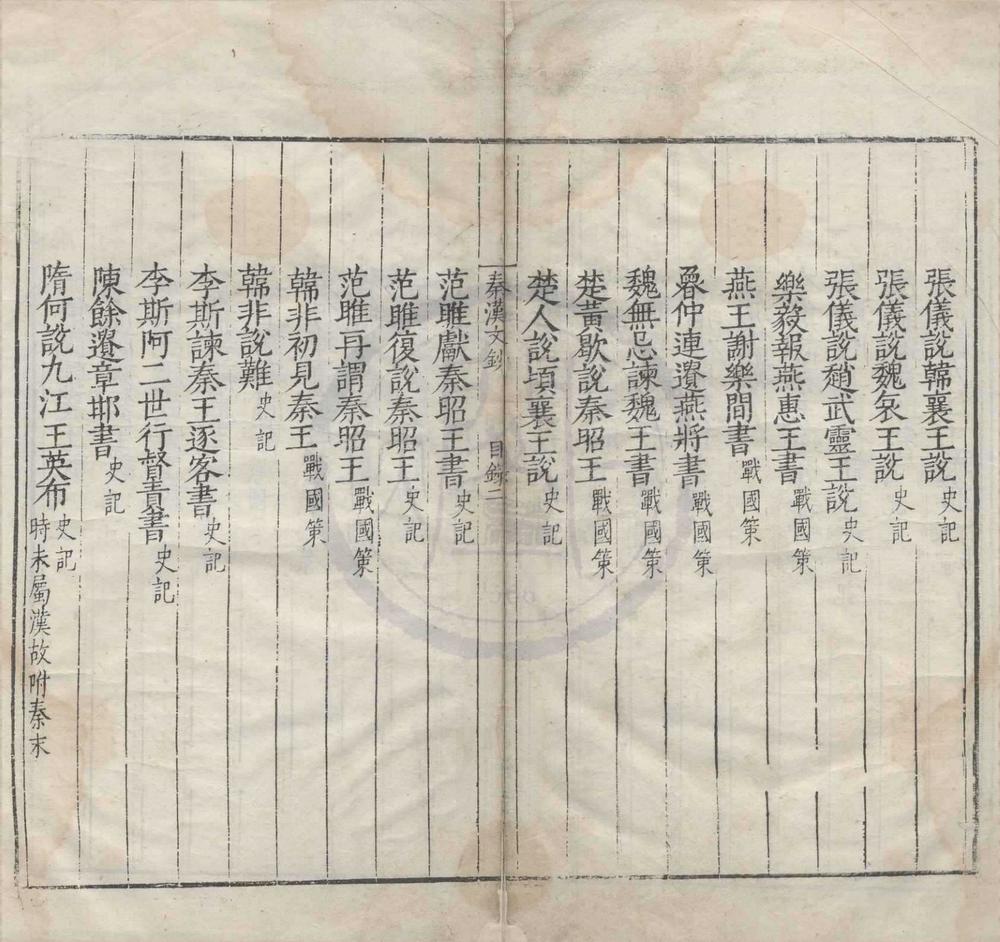 張儀說韓襄王說 史記
張儀說魏哀王說 史記
張儀說趙武靈王說 史記
樂毅報燕惠王書 戰國策
燕王謝樂間書 戰國策
魯仲連遺燕將書 戰國策
魏無忌諫魏王書 戰國策
楚黃歇說秦昭王 戰國策
楚人說頃襄王說 史記
秦漢文鈔 目錄 二
范雎獻秦昭王書 史記
范雎復說秦昭王 史記
范雎再謂秦昭王 戰國策
韓非初見秦王 戰國策
韓非說難 史記
李斯諫秦王逐客書 史記
李斯阿二世行督責書 史記
陳餘遺章邯書 史記
隋何說九江王英布 史記
時未屬漢故附秦末